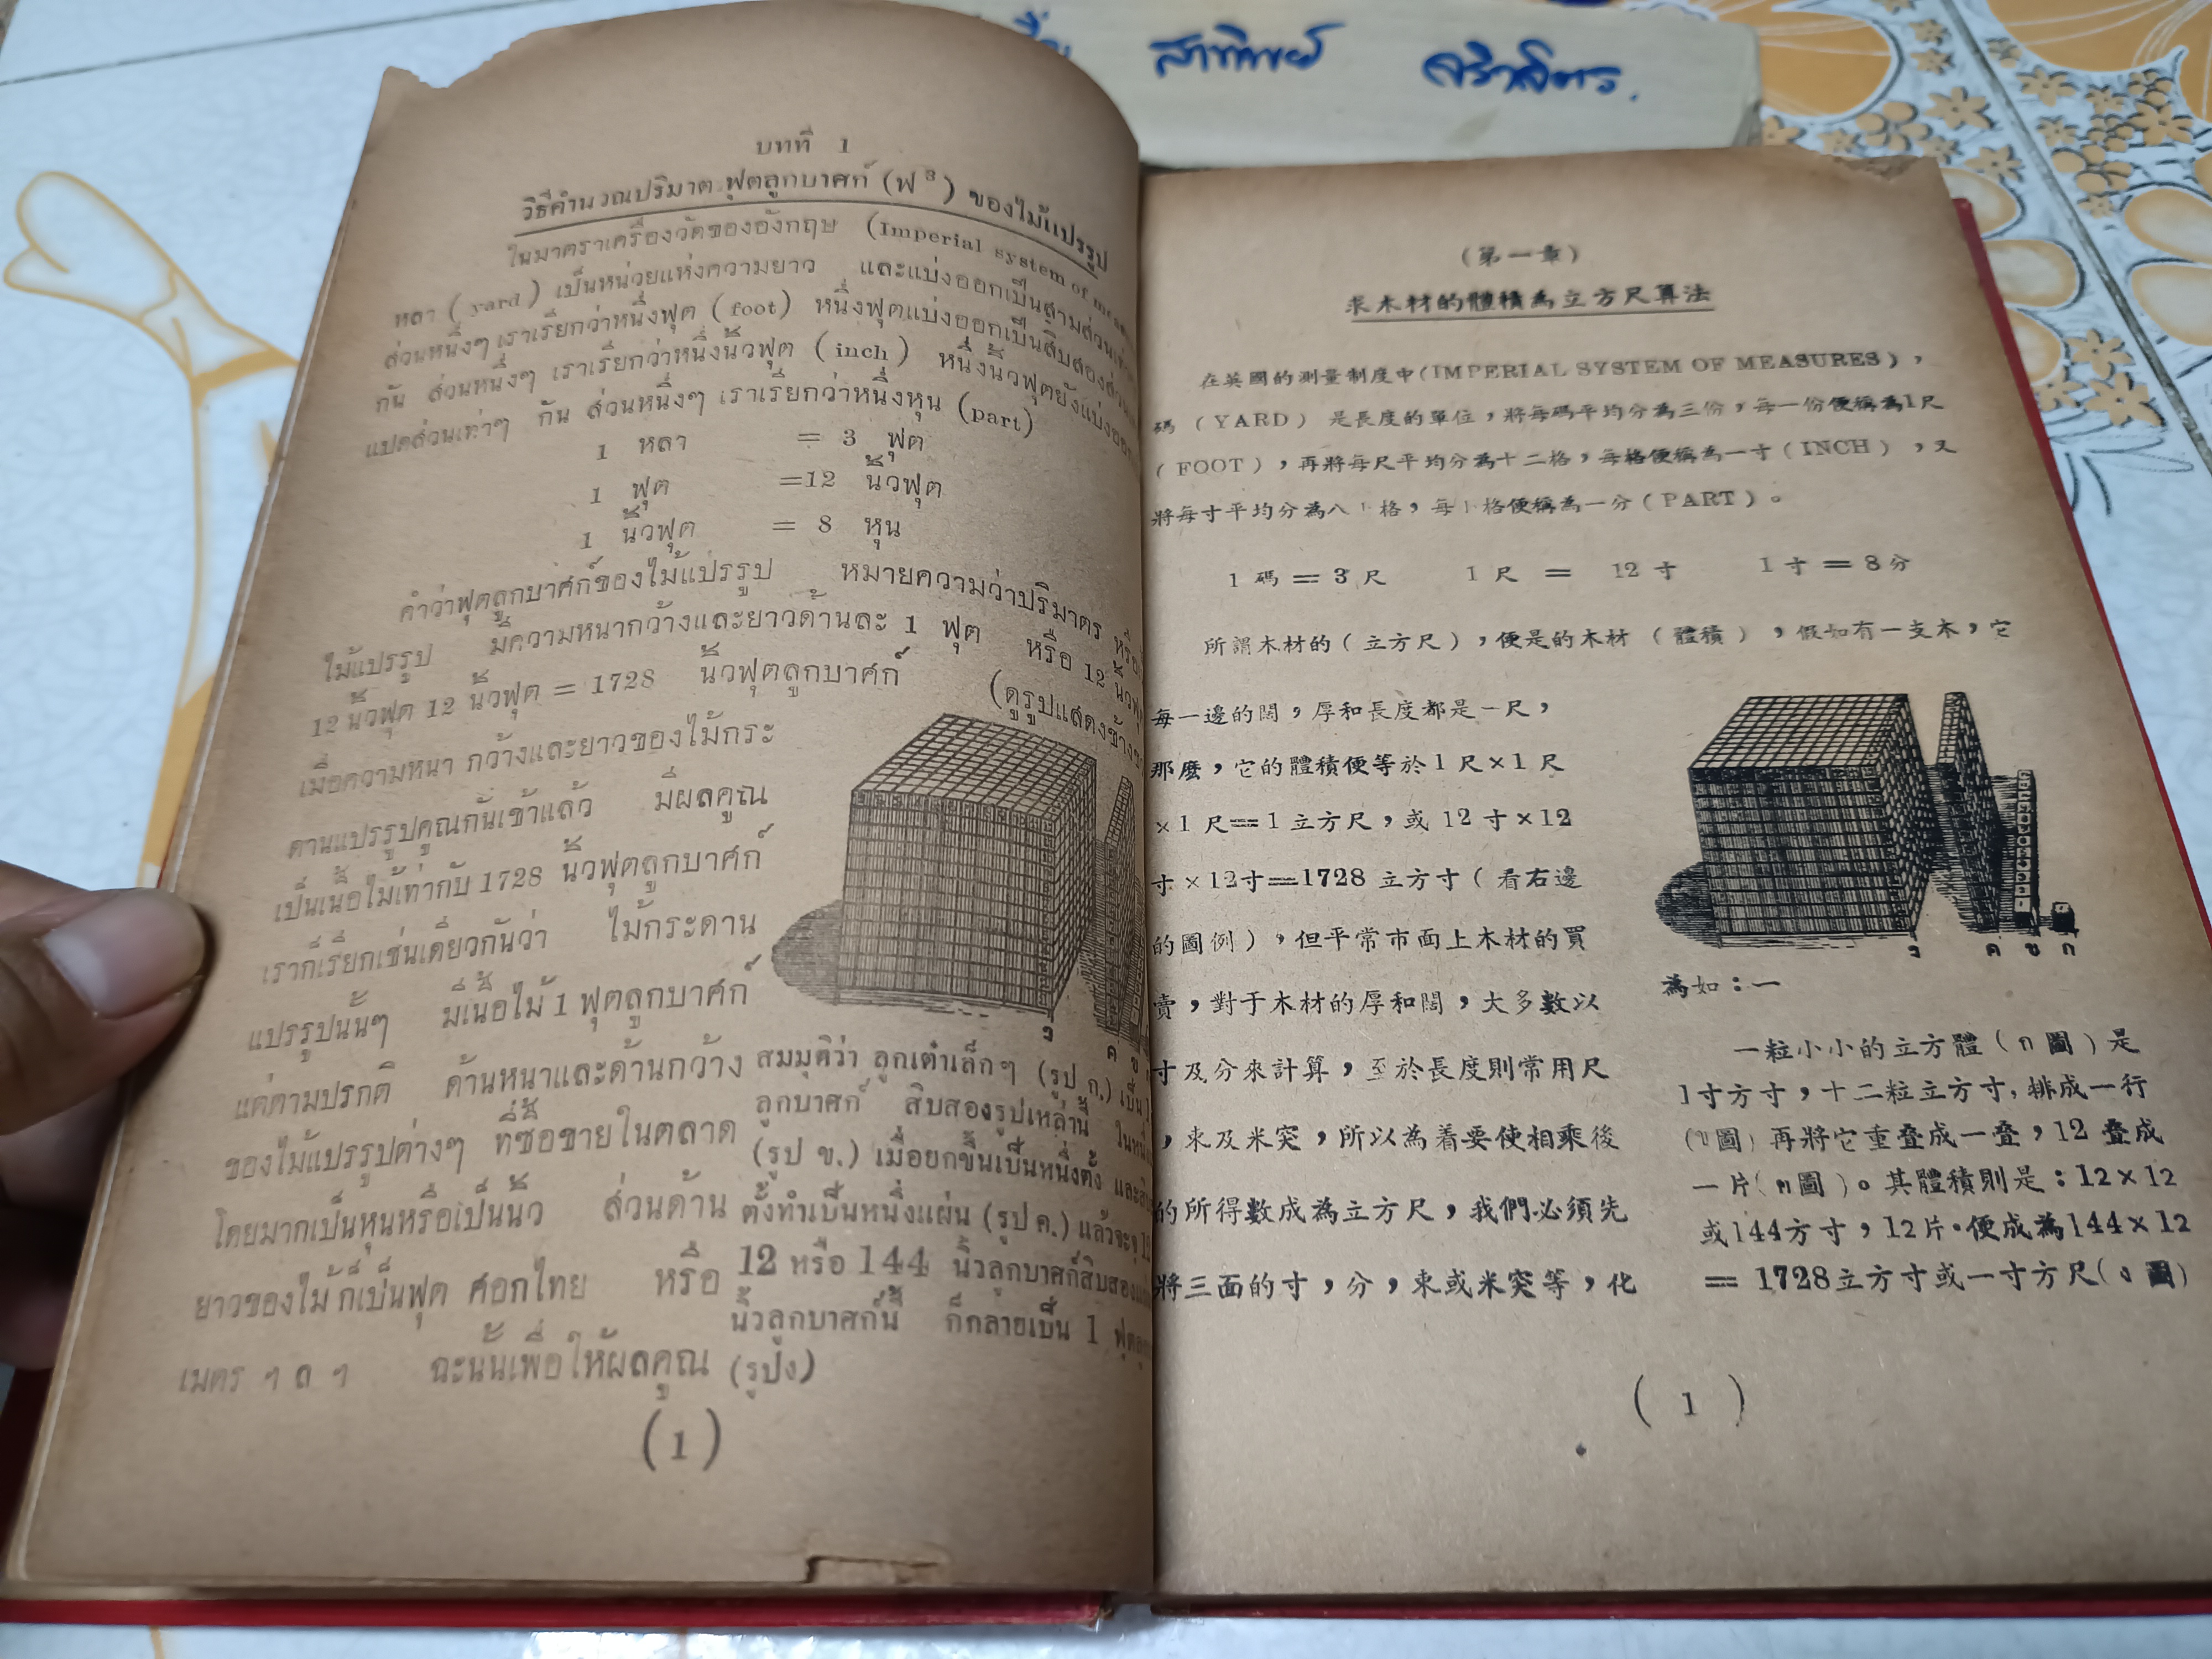 สาทิพย์
บทที่ 1
วิธีคำนวณปริมาต ฟุตลูกบาศก์ (ฟ ³) ของไม้แปรรูป
ในมาตราเครื่องวัดของอังกฤษ (Imperial system of
หลา (yard) เป็นหน่วยแห่งความยาว และแบ่งออกเป็นสามส่วน
ส่วนหนึ่งๆ เราเรียกว่าหนึ่งฟุต (foot) หนึ่งฟุตแบ่งออกเป็นสิบสองส่วน
กัน ส่วนหนึ่งๆ เราเรียกว่าหนึ่งนิ้วฟุต (inch) หนึ่งนิ้วฟุตยังแบ่งออก
แปดส่วนเท่าๆ กัน ส่วนหนึ่งๆ เราเรียกว่าหนึ่งหุน (part)
1 หลา = 3 ฟุต
1 ฟุต =12 นิ้วฟุต
1 นิ้วฟุต = 8 หุน
คำว่าฟุตลูกบาศก์ของไม้แปรรูป หมายความว่าปริมาตร
ไม้แปรรูป มีความหนากว้างและยาวด้านละ 1 ฟุต หรือ 12
12 นิ้วฟุต 12 นิ้วฟุต = 1728 นิ้วฟุตลูกบาศก์ (ดูรูปแสดงข้าง
เมื่อความหนา กว้างและยาวของไม้กระ
ดานแปรรูปคูณกันเข้าแล้ว มีผลคูณ
เป็นเนื้อไม้เท่ากับ 1728 นิ้วฟุตลูกบาศก์
เราก็เรียกเช่นเดียวกันว่า ไม้กระดาน
แปรรูปนั้นๆ มีเนื้อไม้ 1 ฟุตลูกบาศก์
แต่ตามปรกติ ด้านหนาและด้านกว้าง
ของไม้แปรรูปต่างๆ ที่ซื้อขายในตลาด
โดยมากเป็นหุนหรือเป็นนิ้ว ส่วนด้าน
ยาวของไม้ ก็เป็นฟุต ศอกไทย หรือ
เมตร ฯ ล ฯ ฉะนั้นเพื่อให้ผลคูณ
ง ค ข
สมมุติว่า ลูกเต๋าเล็กๆ (รูป ก.)
ลูกบาศก์ สิบสองรูปเหล่านี้
(รูป ข.) เมื่อยกขึ้นเป็นหนึ่งตั้ง
ตั้งทำเป็นหนึ่งแผ่น (รูป ค.) แล้วจะ
12 หรือ 144 นิ้วลูกบาศก์สิบสอง
นิ้วลูกบาศก์นี้ ก็กลายเป็น 1
(รูปง)
(1)
(第一章)
求木材的體積為立方尺算法
在英國的測量制度中(IMPERIAL SYSTEM OF MEASURES),
碼 (YARD) 是長度的單位,將每碼平均分為三份,每一份便稱為1尺
(FOOT),再將每尺平均分為十二格,每格便稱為一寸(INCH),又
將每寸平均分為八 格,每 格便稱為一分(PART)。
1 碼 = 3 尺 1 尺 = 12 寸 1 寸 = 8 分
所謂木材的(立方尺),便是的木材 (體積),假如有一支木,它
每一邊的闊,厚和長度都是一尺,
那麼,它的體積便等於1 尺×1 尺
×1 尺=1 立方尺,或 12 寸×12
寸×12寸=1728 立方寸(看右邊
的圖例),但平常市面上木材的買
賣,對于木材的厚和闊,大多數以
寸及分來計算,至於長度則常用尺
,束及米突,所以為着要使相乘後
的所得數成為立方尺,我們必須先
將三面的寸,分,束或米突等,化
ง ค ข ก
為如:一
一粒小小的立方體(ก 圖)是
1寸方寸,十二粒立方寸,排成一行
(ข圖)再將它重叠成一叠,12 叠成
一片(ค圖)。其體積則是:12×12
或144方寸,12片.便成為144×12
= 1728立方寸或一寸方尺(ง 圖)
(1)